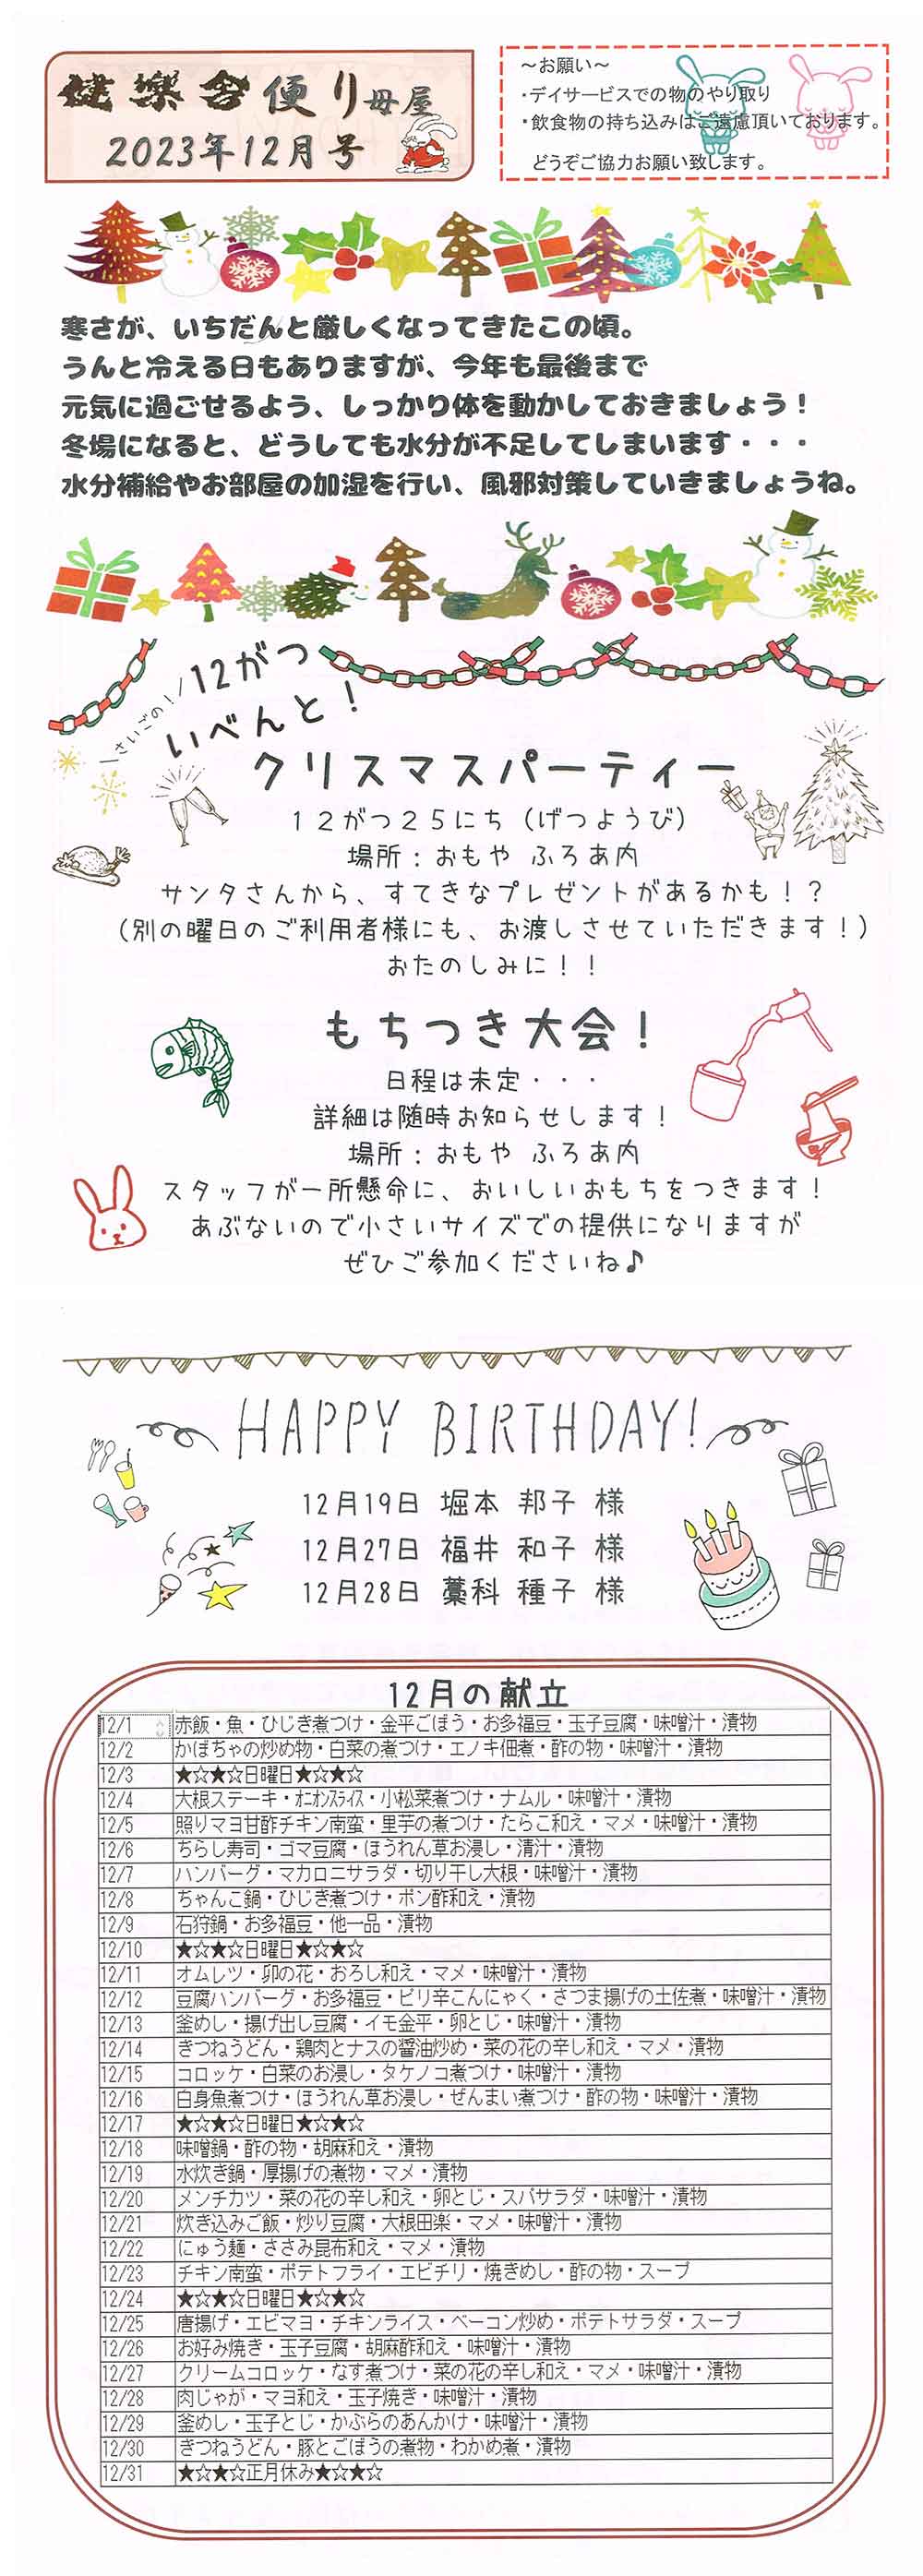 健樂舎便り母屋
2023年12月号
～お願い～
・デイサービスでの物のやり取り
・飲食物の持ち込みはご遠慮頂いております。
どうぞご協力お願い致します。
寒さが、いちだんと厳しくなってきたこの頃。
うんと冷える日もありますが、今年も最後まで
元気に過ごせるよう、しっかり体を動かしておきましょう！
冬場になると、どうしても水分が不足してしまいます・・・
水分補給やお部屋の加湿を行い、風邪対策していきましょうね。
さいごの！
12がつ
いべんと！
クリスマスパーティー
１２がつ２５にち（げつようび）
場所：おもや ふろあ内
サンタさんから、すてきなプレゼントがあるかも！？
（別の曜日のご利用者様にも、お渡しさせていただきます！）
おたのしみに！！
もちつき大会！
日程は未定・・・
詳細は随時お知らせします！
場所：おもや ふろあ内
スタッフが一所懸命に、おいしいおもちをつきます！
あぶないので小さいサイズでの提供になりますが
ぜひご参加くださいね♪
HAPPY BIRTHDAY!
12月19日 堀本 邦子 様
12月27日 福井 和子 様
12月28日 藁科 種子 様
12月の献立
12/1 赤飯・魚・ひじき煮つけ・金平ごぼう・お多福豆・玉子豆腐・味噌汁・漬物
12/2 かぼちゃの炒め物・白菜の煮つけ・エノキ佃煮・酢の物・味噌汁・漬物
12/3 ★☆★☆日曜日★☆★☆
12/4 大根ステーキ・ｵﾆｵﾝｽﾗｲｽ・小松菜煮つけ・ナムル・味噌汁・漬物
12/5 照りマヨ甘酢チキン南蛮・里芋の煮つけ・たらこ和え・マメ・味噌汁・漬物
12/6 ちらし寿司・ゴマ豆腐・ほうれん草お浸し・清汁・漬物
12/7 ハンバーグ・マカロニサラダ・切り干し大根・味噌汁・漬物
12/8 ちゃんこ鍋・ひじき煮つけ・ポン酢和え・漬物
12/9 石狩鍋・お多福豆・他一品・漬物
12/10 ★☆★☆日曜日★☆★☆
12/11 オムレツ・卯の花・おろし和え・マメ・味噌汁・漬物
12/12 豆腐ハンバーグ・お多福豆・ピリ辛こんにゃく・さつま揚げの土佐煮・味噌汁・漬物
12/13 釜めし・揚げ出し豆腐・イモ金平・卵とじ・味噌汁・漬物
12/14 きつねうどん・鶏肉とナスの醤油炒め・菜の花の辛し和え・マメ・漬物
12/15 コロッケ・白菜のお浸し・タケノコ煮つけ・味噌汁・漬物
12/16 白身魚煮つけ・ほうれん草お浸し・ぜんまい煮つけ・酢の物・味噌汁・漬物
12/17 ★☆★☆日曜日★☆★☆
12/18 味噌鍋・酢の物・胡麻和え・漬物
12/19 水炊き鍋・厚揚げの煮物・マメ・漬物
12/20 メンチカツ・菜の花の辛し和え・卵とじ・スパサラダ・味噌汁・漬物
12/21 炊き込みご飯・炒り豆腐・大根田楽・マメ・味噌汁・漬物
12/22 にゅう麺・ささみ昆布和え・マメ・漬物
12/23 チキン南蛮・ポテトフライ・エビチリ・焼きめし・酢の物・スープ
12/24 ★☆★☆日曜日★☆★☆
12/25 唐揚げ・エビマヨ・チキンライス・ベーコン炒め・ポテトサラダ・スープ
12/26 お好み焼き・玉子豆腐・胡麻酢和え・味噌汁・漬物
12/27 クリームコロッケ・なす煮つけ・菜の花の辛し和え・マメ・味噌汁・漬物
12/28 肉じゃが・マヨ和え・玉子焼き・味噌汁・漬物
12/29 釜めし・玉子とじ・かぶらのあんかけ・味噌汁・漬物
12/30 きつねうどん・豚とごぼうの煮物・わかめ煮・漬物
12/31 ★☆★☆正月休み★☆★☆